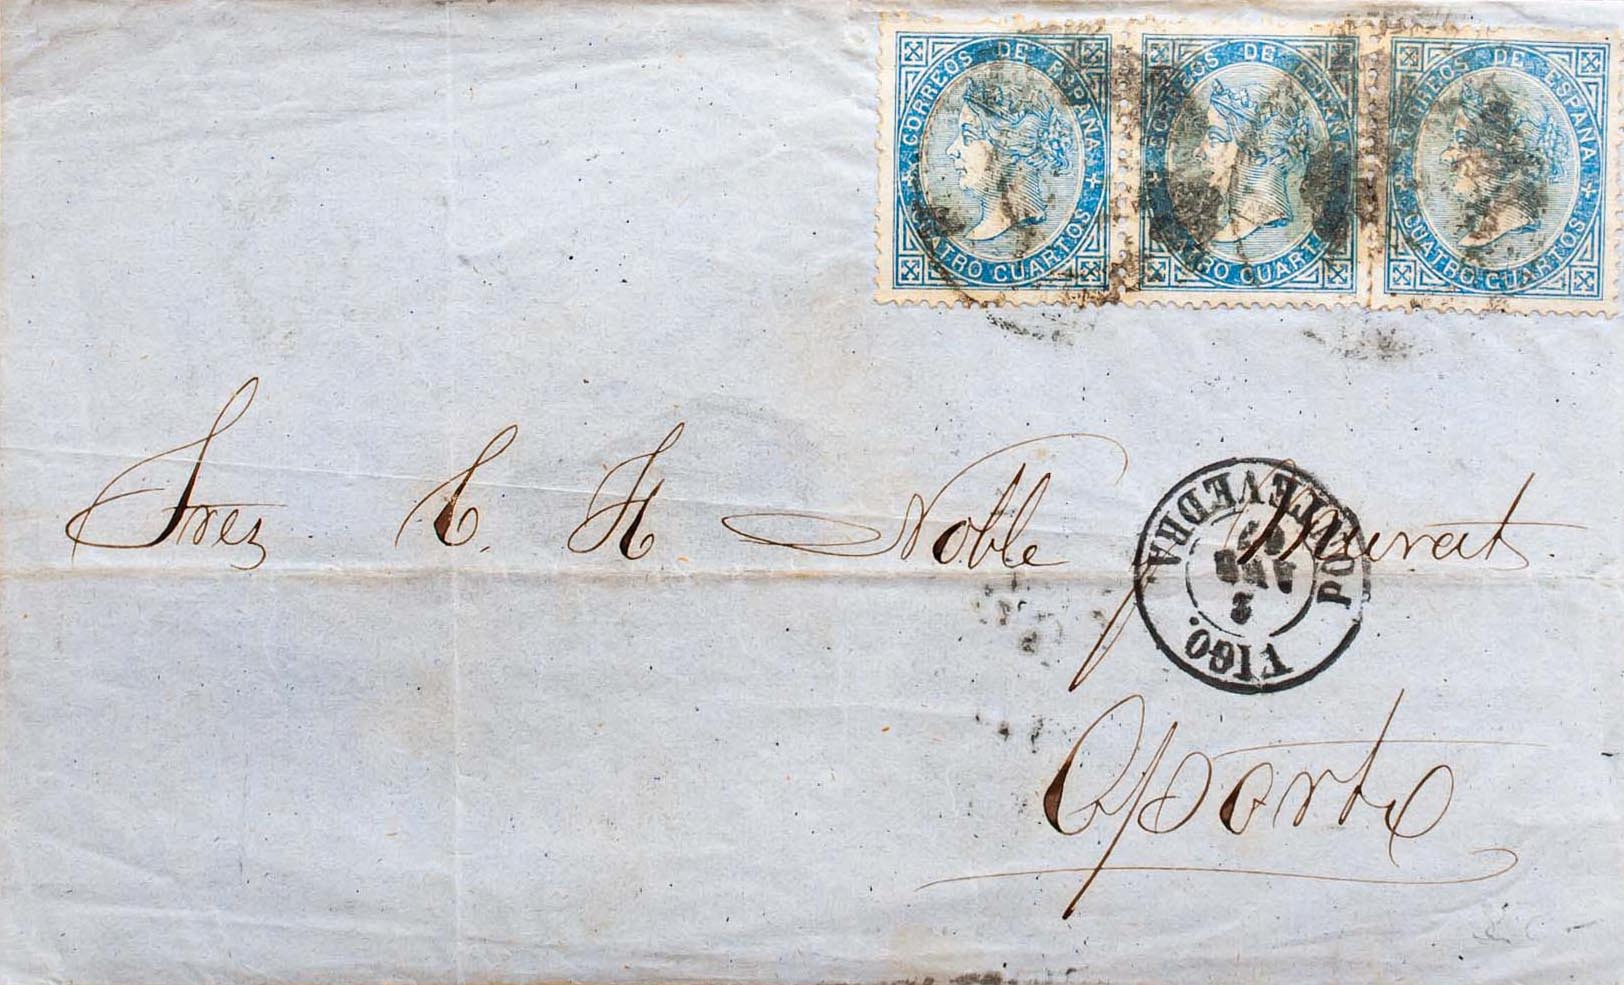 CORREOS DE ESPAÑA
CUATRO CUARTOS
CORREOS DE ESPAÑA
CUATRO CUARTOS
CORREOS DE ESPAÑA
CUATRO CUARTOS
Sres C. H Noble y Murat
Oporto
VIGO. PONTEVEDRA.
2